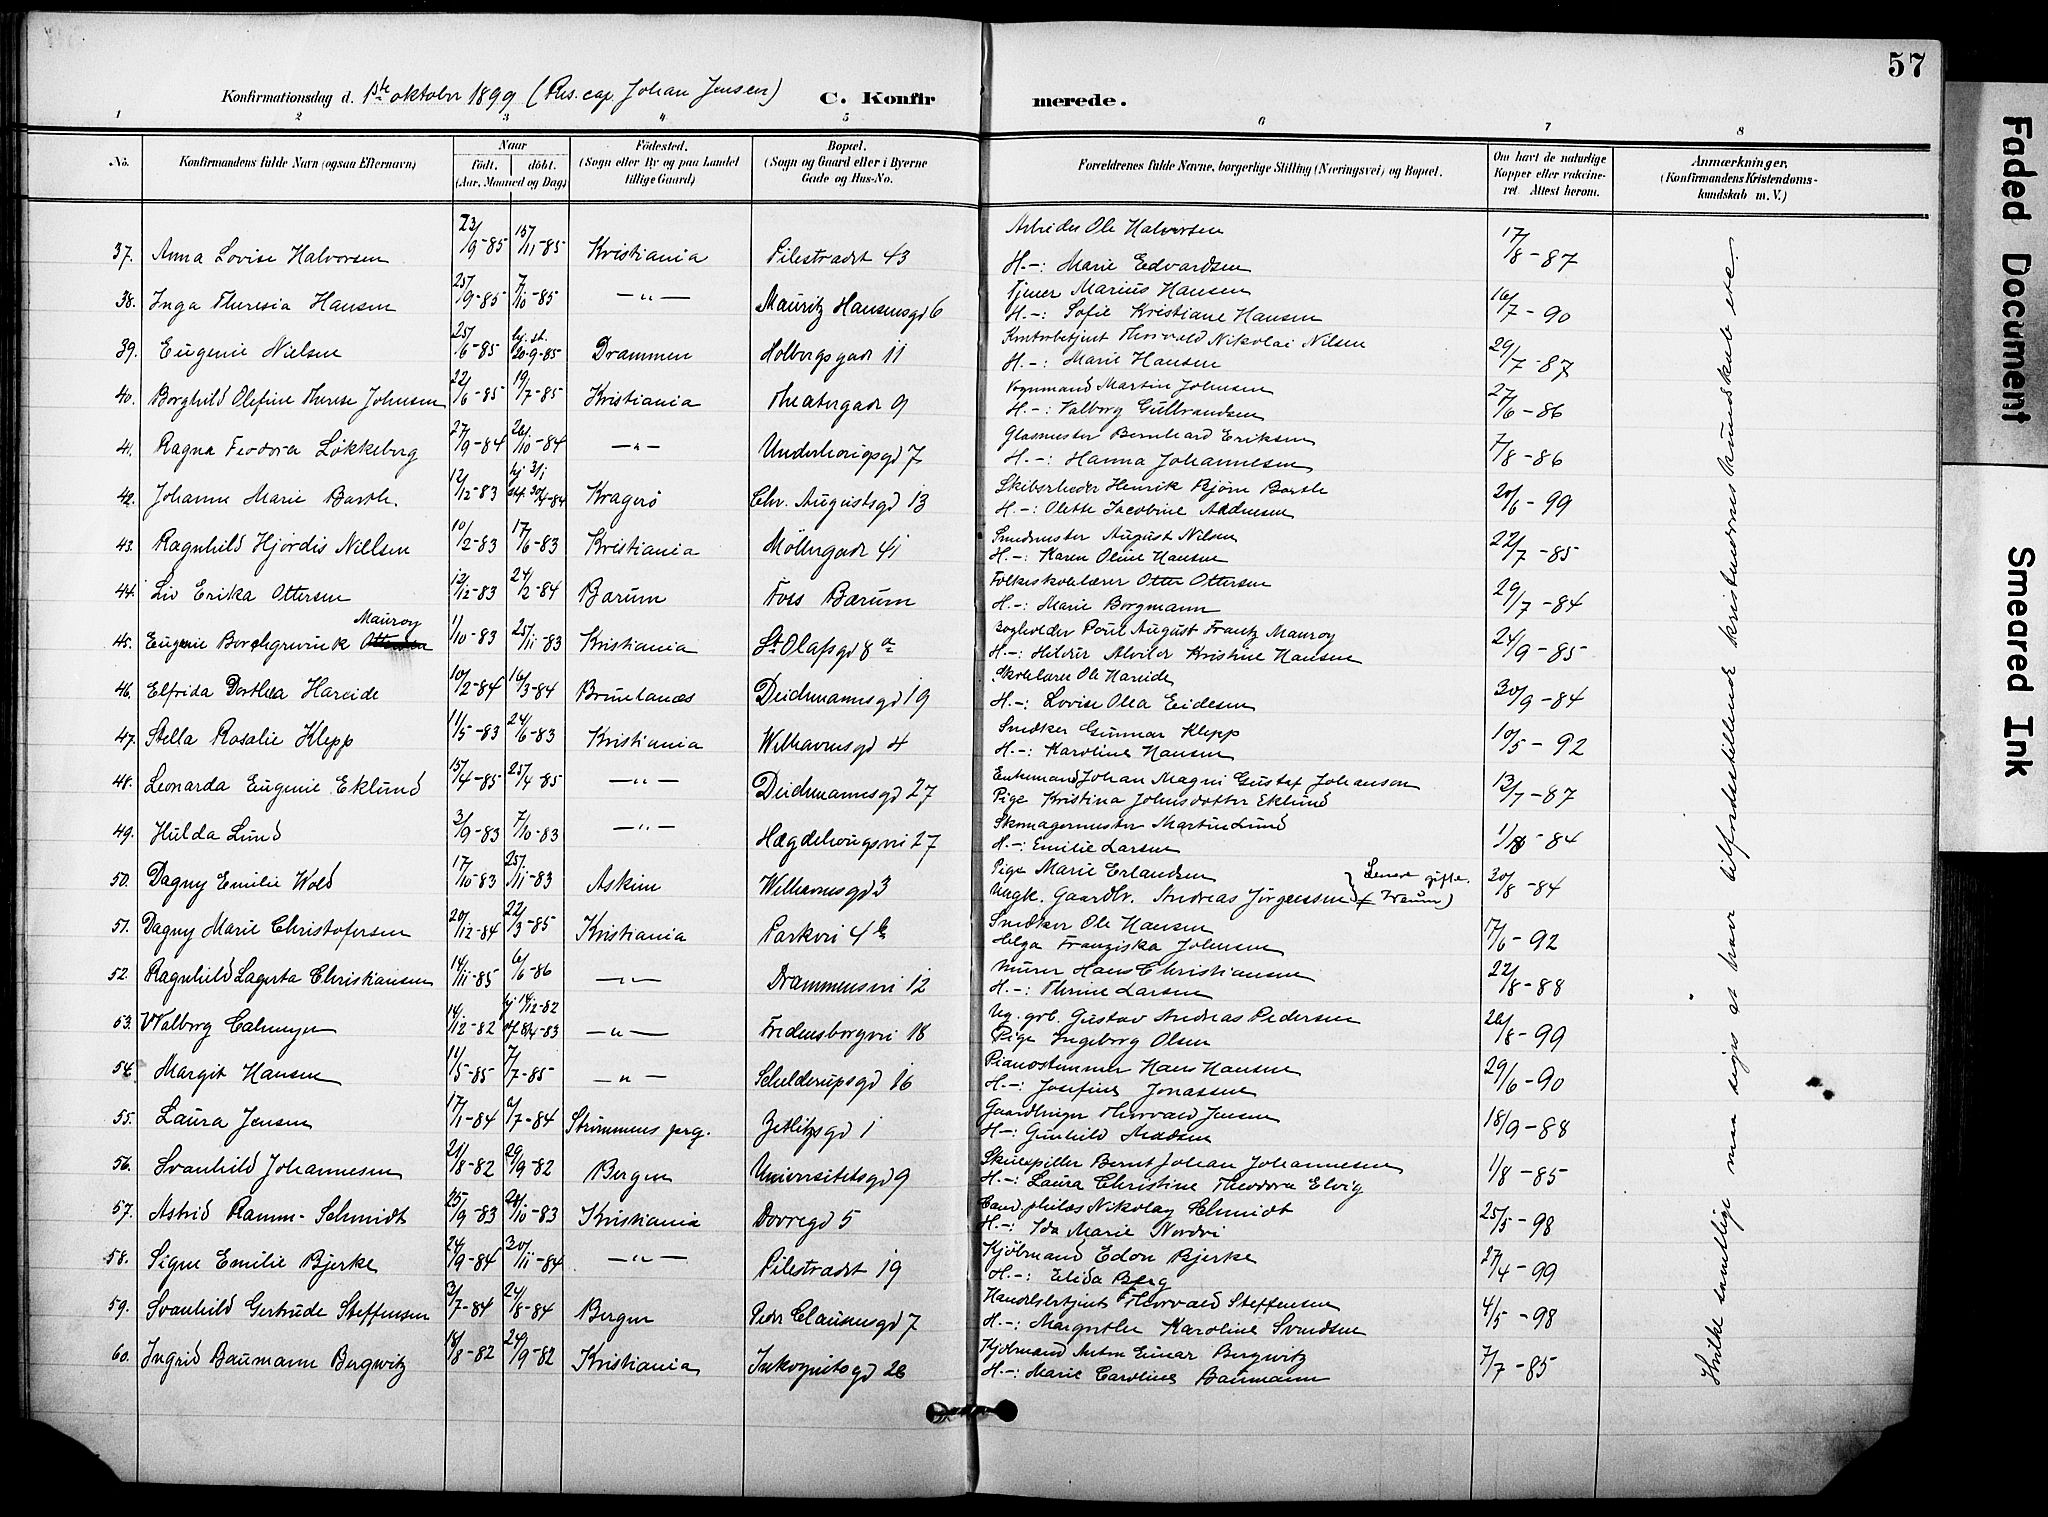 57
Konfirmationsdag d. 1ste oktober 1899 (Res. cap. Johan Jensen) C. Konfirmerede.
1 2 3 4 5 6 7 8
No. Konfirmandens fulde Navn (ogsaa Efternavn) Naar födt. döbt. (Aar, Maaned og Dag) Födested. (Sogn eller By og paa Landet tillige Gaard) Bopæl. (Sogn og Gaard eller i Byerne Gade og Hus-No. Forældrenes fulde Navne, borgerlige Stilling (Næringsvei) og Bopæl. Om havt de naturlige Kopper eller vakcineret. Attest herom. Anmærkninger. (Konfirmandens Kristendomskundskab m. V.)
37. Anna Lovise Halvorsen 23/9-85 15/11-85 Kristiania Pilestrædet 43 Arbeider Ole Halvorsen 17/8-87
H.-: Marie Edvardsen
38. Inga Theresia Hansen 25/9-85 7/10-85 —"— Mauritz Hansensgd 6 Tjener Marius Hansen 16/7-90
H.-: Sofie Kristiane Hansen
39. Eugenie Nielsen 25/6-85 hj. st. 20-9-85 Drammen Holbergsgade 11 Kontorbetjent Thorvald Nikolai Nilsen 29/7-87
H.-: Marie Hansen
40. Borghild Olefine Therese Johnsen 22/6-85 19/7-85 Kristiania Theatergade 9 Vognmand Martin Johnsen 27/6-86
H.-: Valborg Gulbrandsen
41. Ragna Teodora Løkkeberg 27/9-84 26/10-84 —"— Underhougsgd 7 Glasmester Bernhard Eriksen 7/8-86
H.-: Hanna Johannesen
42. Johanne Marie Barth 12/12-83 hj 3/1 st. 30/4-84 Kragerö Chr. Augustsgd 13 Skibsrheder Henrik Bjørn Barth 20/6-99
H.-: Olette Jacobine Andresen
43. Ragnhild Hjördis Nielsen 10/2-83 17/6-83 Kristiania Möllergade 41 Smedmester August Nilsen 22/7-85
H.-: Karen Oline Hansen
44. Liv Erika Ottersen 12/12-83 24/2-84 Bærum Fors Bærum Folkeskolelærer Otto Ottersen 29/7-84
H.-: Marie Borgmann
Mauroy
45. Eugenie Borchgrevink 1/10-83 25/11-83 Kristiania St. Olafsgd 8 a Bogholder Poul August Frantz Mauroy 24/9-85
H.-: Hildur Alvilde Kristine Hansen
46. Elfrida Dorthea Hareide 10/2-84 16/3-84 Brunlanæs Deichmannsgd 19 Skolelærer Ole Hareide 30/9-84
H.-: Lovise Olea Eidesen
47. Stella Rosalie Klepp 11/5-83 24/6-83 Kristiania Welhavensgd 4 Snedker Gunnar Klepp 10/5-92
H.-: Karoline Hansen
48. Leonarda Eugenie Eklund 15/4-85 25/4-85 —"— Deichmannsgd 27 Enkemand Johan Magni Gustaf Johanson 13/7-87
Pige Kristina Johnsdotter Eklund
49. Hulda Lund 3/9-83 7/10-83 —"— Hægdehougsvei 27 Skomagermester Martin Lund 1/8-84
H.-: Emilie Larsen
50. Dagny Emilie Wold 17/10-83 25/11-83 Askim Welhavensgd 3 Pige Marie Erlandsen } Senere gifte. 30/8-84
Ungk. Gaardbr. Andreas Jörgenssen
51. Dagny Marie Christofersen 20/12-84 22/3-85 Kristiania Parkvei 4 b Snedker Ole Hansen 17/6-92
Helga Franziska Johnsen
52. Ragnhild Lagerta Christiansen 14/11-85 6/6-86 —"— Drammensvei 12 Murer Hans Christiansen 22/8-88
H.-: Thrine Larsen
53. Walborg Calmeyer 14/12-82 hj 14/12-82 8/4-83 —"— Fredensborgvei 18 Ug. grb. Gustav Andreas Pedersen 26/8-99
Pige Ingeborg Olsen
54. Margit Hansen 11/5-85 7/7-85 —"— Schelderupsgd 16 Pianostemmer Hans Hansen 29/6-90
H.-: Josefine Jonassen
55. Laura Jensen 17/1-84 6/7-84 Strömmens prg. Zetlitzsgd 1 Gaardbruger Thorvald Jensen 18/9-88
H.-: Gunhild Madsen
56. Svanhild Johannesen 21/8-82 29/9-82 Bergen Universitetsgd 9 Skuespiller Bernt Johan Johannesen 1/8-85
H.-: Laura Christine Theodora Elvig
57. Astrid Ramm-Schmidt 25/9-83 21/10-83 Kristiania Dovregd 5 Cand. philos Nikolay Schmidt 25/5-98
H.-: Ida Marie Nordvi
58. Signe Emilie Bjerke 24/9-84 30/11-84 —"— Pilestrædet 19 Kjöbmand Edon Bjerke 27/4-99
H.-: Elida Berg
59. Svanhild Gertrude Steffensen 3/7-84 24/8-84 Bergen Peder Clausensgd 7 Handelsbetjent Thorvald Steffensen 4/5-98
H.-: Margrethe Karoline Svendsen
60. Ingrid Baumann Bergwitz 14/8-82 24/9-82 Kristiania Inkognitogd 26 Kjöbmand Anton Einar Bergwitz 7/7-85
H.-: Marie Caroline Baumann
Hvilke samtlige maa siges at have tilfredsstillende kristendomskundskab etc.
Faded Document
Smeared Ink